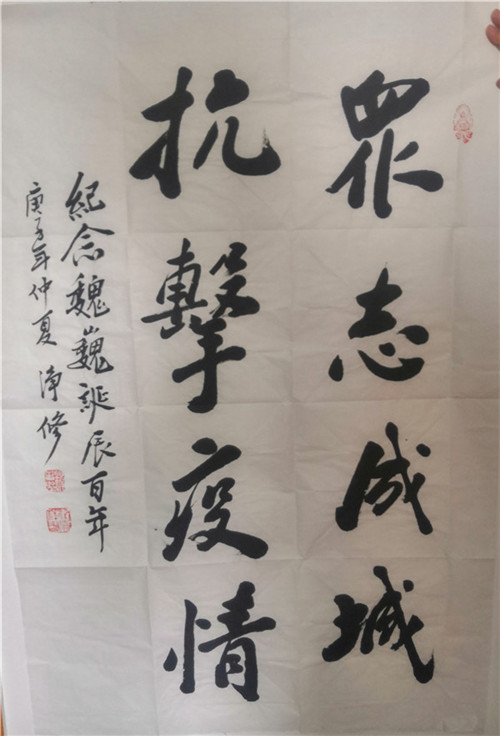 眾志成城
抗擊疫情
紀念魏巍誕辰百年
庚子年仲夏 淨修